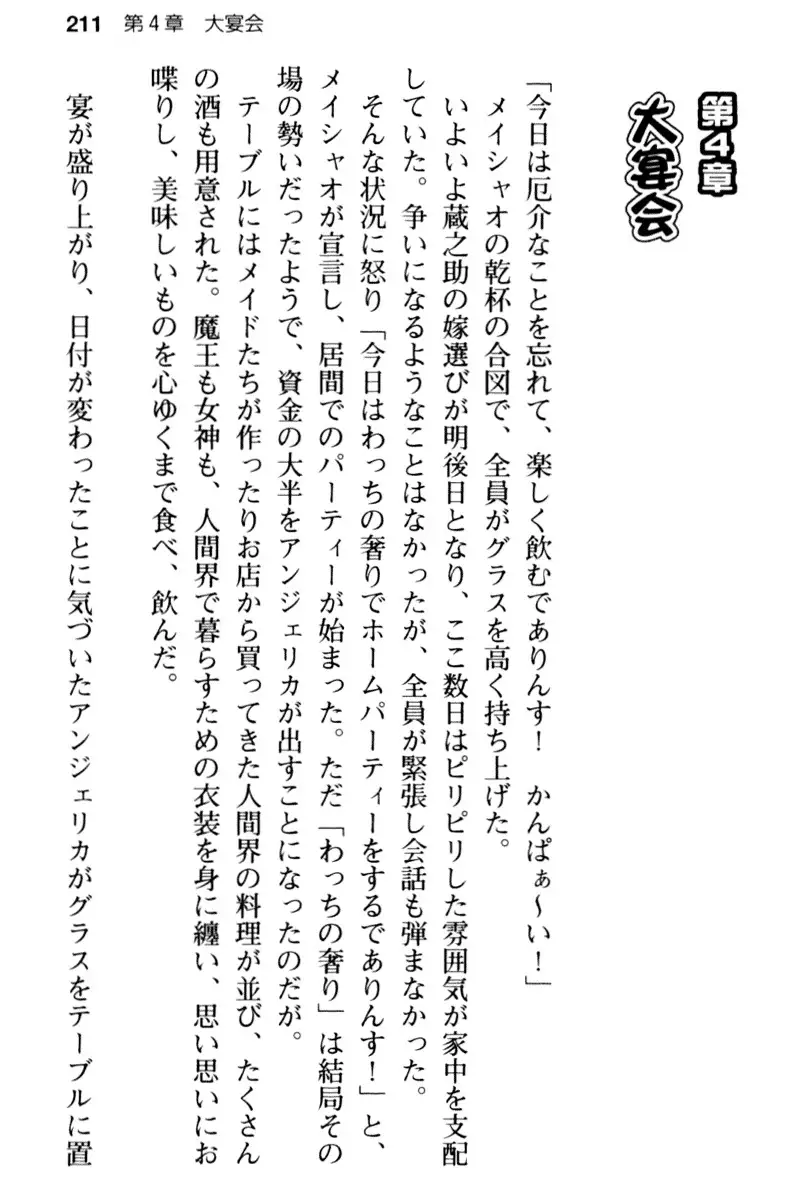 211 第4章 大宴会
第4章
大宴会
「今日は厄介なことを忘れて、楽しく飲むでありんす! かんぱぁ～い!」
メイシャオの乾杯の合図で、全員がグラスを高く持ち上げた。
いよいよ蔵之助の嫁選びが明後日となり、ここ数日はピリピリした雰囲気が家中を支配
していた。争いになるようなことはなかったが、全員が緊張し会話も弾まなかった。
そんな状況に怒り「今日はわっちの奢りでホームパーティーをするでありんす!」と、
メイシャオが宣言し、居間でのパーティーが始まった。ただ「わっちの奢り」は結局その
場の勢いだったようで、資金の大半をアンジェリカが出すことになったのだが。
テーブルにはメイドたちが作ったりお店から買ってきた人間界の料理が並び、たくさん
の酒も用意された。魔王も女神も、人間界で暮らすための衣装を身に纏い、思い思いにお
喋りし、美味しいものを心ゆくまで食べ、飲んだ。
宴が盛り上がり、日付が変わったことに気づいたアンジェリカがグラスをテーブルに置